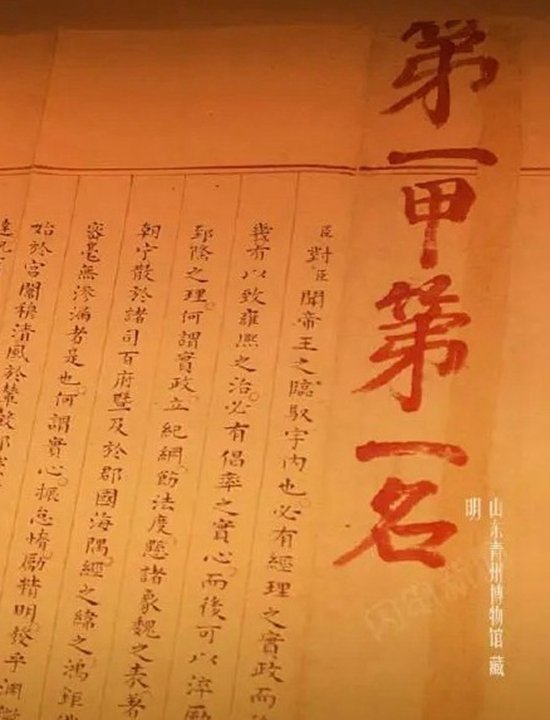 第一甲第一名
臣對臣聞帝王之臨馭宇內也必有經理之實政而
幾有以致雍熙之治必有倡率之實心而後可以淬勵
郅隆之理何謂實政立紀綱飭法度懸諸象魏之表著
朝宁散於諸司百府暨及於郡國海隅經之緯之鴻鉅
密毫無滲漏者是也何謂實心振怠惰勵精明發乎淵
始於宮闈穆清風於輦轂邦
達九
山东青州博物馆 藏
明